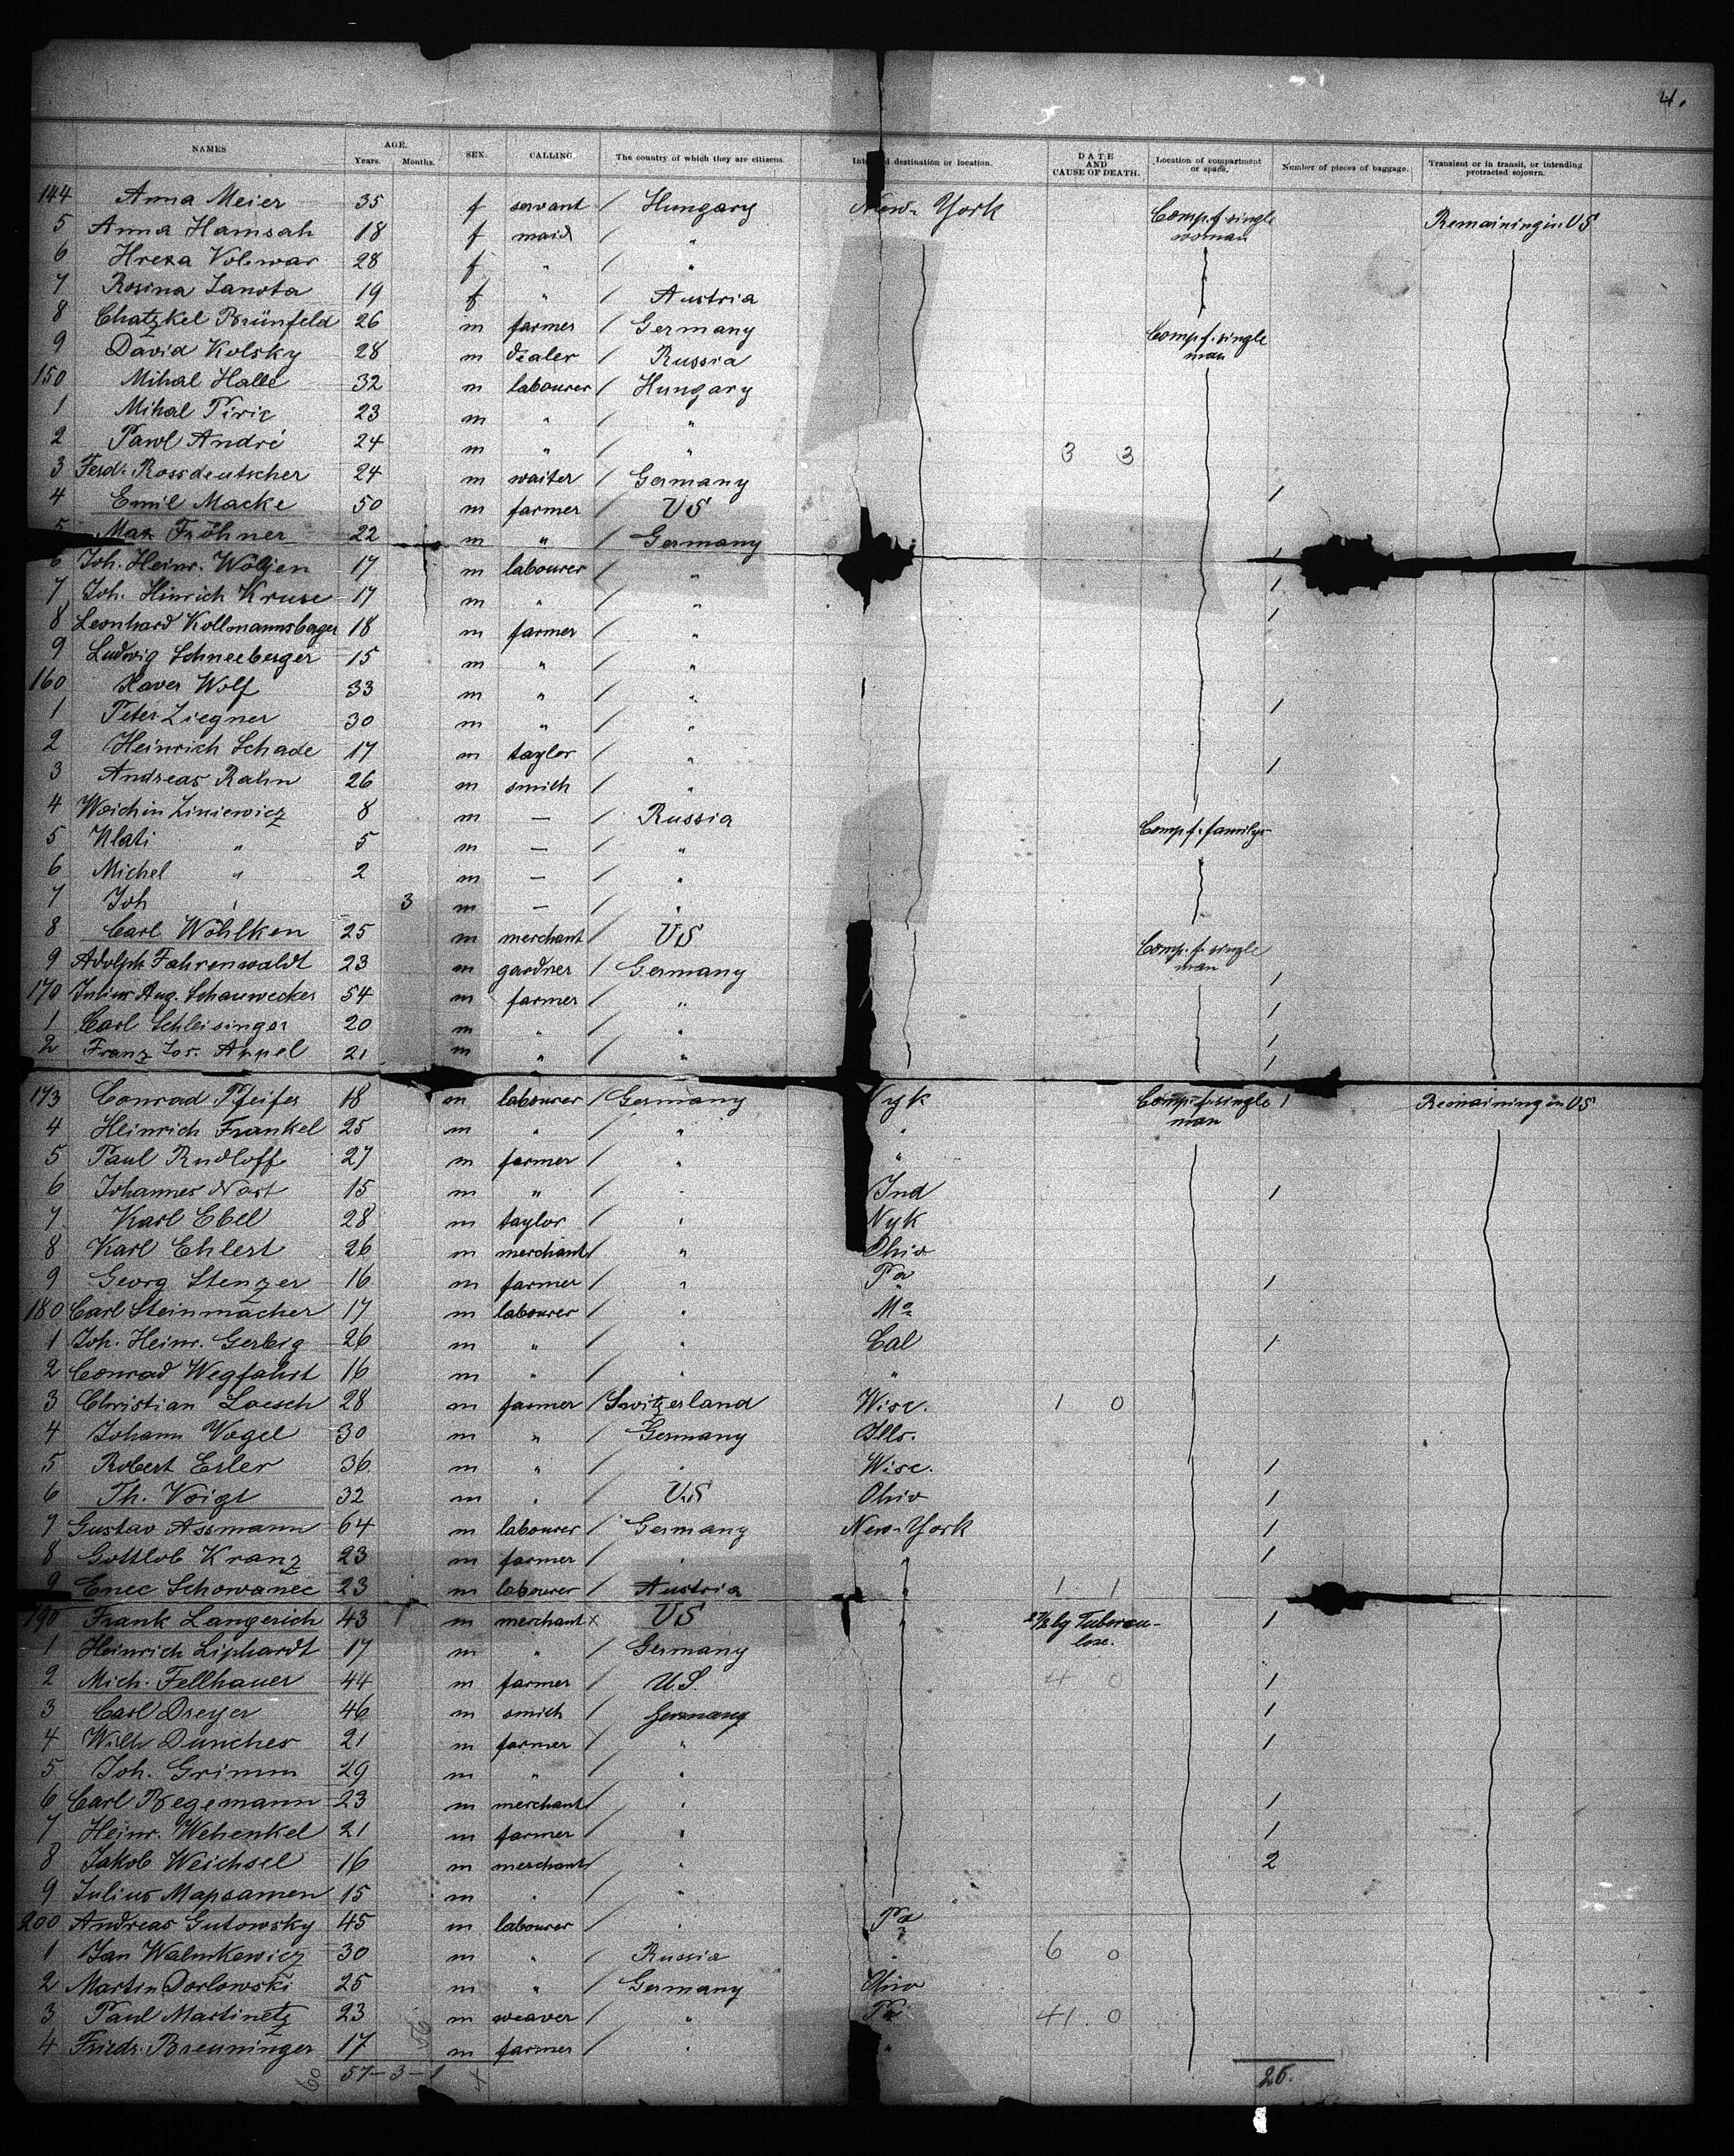 4.
NAMES AGE. Years. Months. SEX. CALLING. The country of which they are citizens. destination or location. DATE AND CAUSE OF DEATH. Location of compartment or space. Number of pieces of baggage. Transient or in transit, or intending protracted sojourn.
144 Anna Meier 35 f servant / Hungary New-York Comp. f. single woman Remaining in US
5 Anna Hamsah 18 f maid / "
6 Hresa Volewar 28 f " / "
7 Rosina Zanota 19 f " / Austria
8 Chatzkel Brünfeld 26 m farmer / Germany Comp. f. single man
9 David Kolsky 28 m dealer / Russia
150 Mihal Halle 32 m labourer / Hungary
1 Mihal Piric 23 m " "
2 Pawl André 24 m " / " 3 3
3 Ferd. Rossdeutscher 24 m waiter / Germany 1
4 Emil Macke 50 m farmer / US
5 Max Fröhner 22 m " / Germany 1
6 Joh. Heinr. Wöltjen 17 m labourer / " 1
7 Joh. Hinrich Kruse 17 m " / " 1
8 Leonhard Kollmannsberger 18 m farmer / "
9 Ludwig Schneeberger 15 m " / "
160 Xaver Wolf 33 m " / "
1 Peter Ziegner 30 m " / " 1
2 Heinrich Schade 17 m taylor / "
3 Andreas Rahn 26 m smith / " 1
4 Woichin Liniewicz 8 m — / Russia Comp. f. familys
5 Wlati " 5 m — / "
6 Michel " 2 m — / "
7 Joh " 3 m — / "
8 Carl Wöhlken 25 m merchant / US Comp. f. single man
9 Adolph Fahrenwaldt 23 m gardner / Germany 1
170 Julius Aug. Schauwecker 54 m farmer / " 1
1 Carl Schleisinger 20 m " / " 1
2 Franz Jos. Appel 21 m " / " 1
173 Conrad Pfeifer 18 m labourer / Germany Nyk Comp. f. single man 1 Remaining in US
4 Heinrich Frankel 25 m " / " "
5 Paul Rudloff 27 m farmer / " "
6 Johannes Nast 15 m " / " Ind 1
7 Karl Ebel 28 m taylor / " Nyk
8 Karl Ehlert 26 m merchant / " Ohio
9 Georg Stenzer 16 m farmer / " Pa 1
180 Carl Steinmacher 17 m labourer / " Mo
1 Joh. Heinr. Gerbig 26 m " / " Cal 1
2 Conrad Wegfahrt 16 m " / " "
3 Christian Loesch 28 m farmer / Switzerland Wisc. 1 0
4 Johann Vogel 30 m " / Germany Ills.
5 Robert Esler 36 m " / " Wisc. 1
6 Th. Voigt 32 m " / US Ohio 1
7 Gustav Assmann 64 m labourer / Germany New-York 1
8 Gottlob Kranz 23 m farmer / " " 1
9 Enec Schowanec 23 m labourer / Austria " 1 1
190 Frank Langerich 43 m merchant x US " 2/2 by Tubercu-lose. 1
1 Heinrich Liphardt 17 m " / Germany
2 Mich. Fellhauer 44 m farmer / U.S. 4 0 1
3 Carl Dreyer 46 m smith / Germany 1
4 Wilh Dunches 21 m farmer / " 1
5 Joh. Grimm 29 m " / "
6 Carl Begemann 23 m merchant / " 1
7 Heinr. Wehenkel 21 m farmer / " 1
8 Jakob Weichsel 16 m merchant / " 2
9 Julius Mapsamen 15 m " / "
200 Andreas Gutowsky 45 m labourer / " Pa
1 Jan Walmkewicz 30 m " / Russia " 6 0
2 Martin Dorlowski 25 m " / Germany Ohio
3 Paul Martinetz 23 m weaver / " Pa 41 0
4 Friedr. Breuninger 17 m farmer / " "
60 57-3-1 56 x 26.